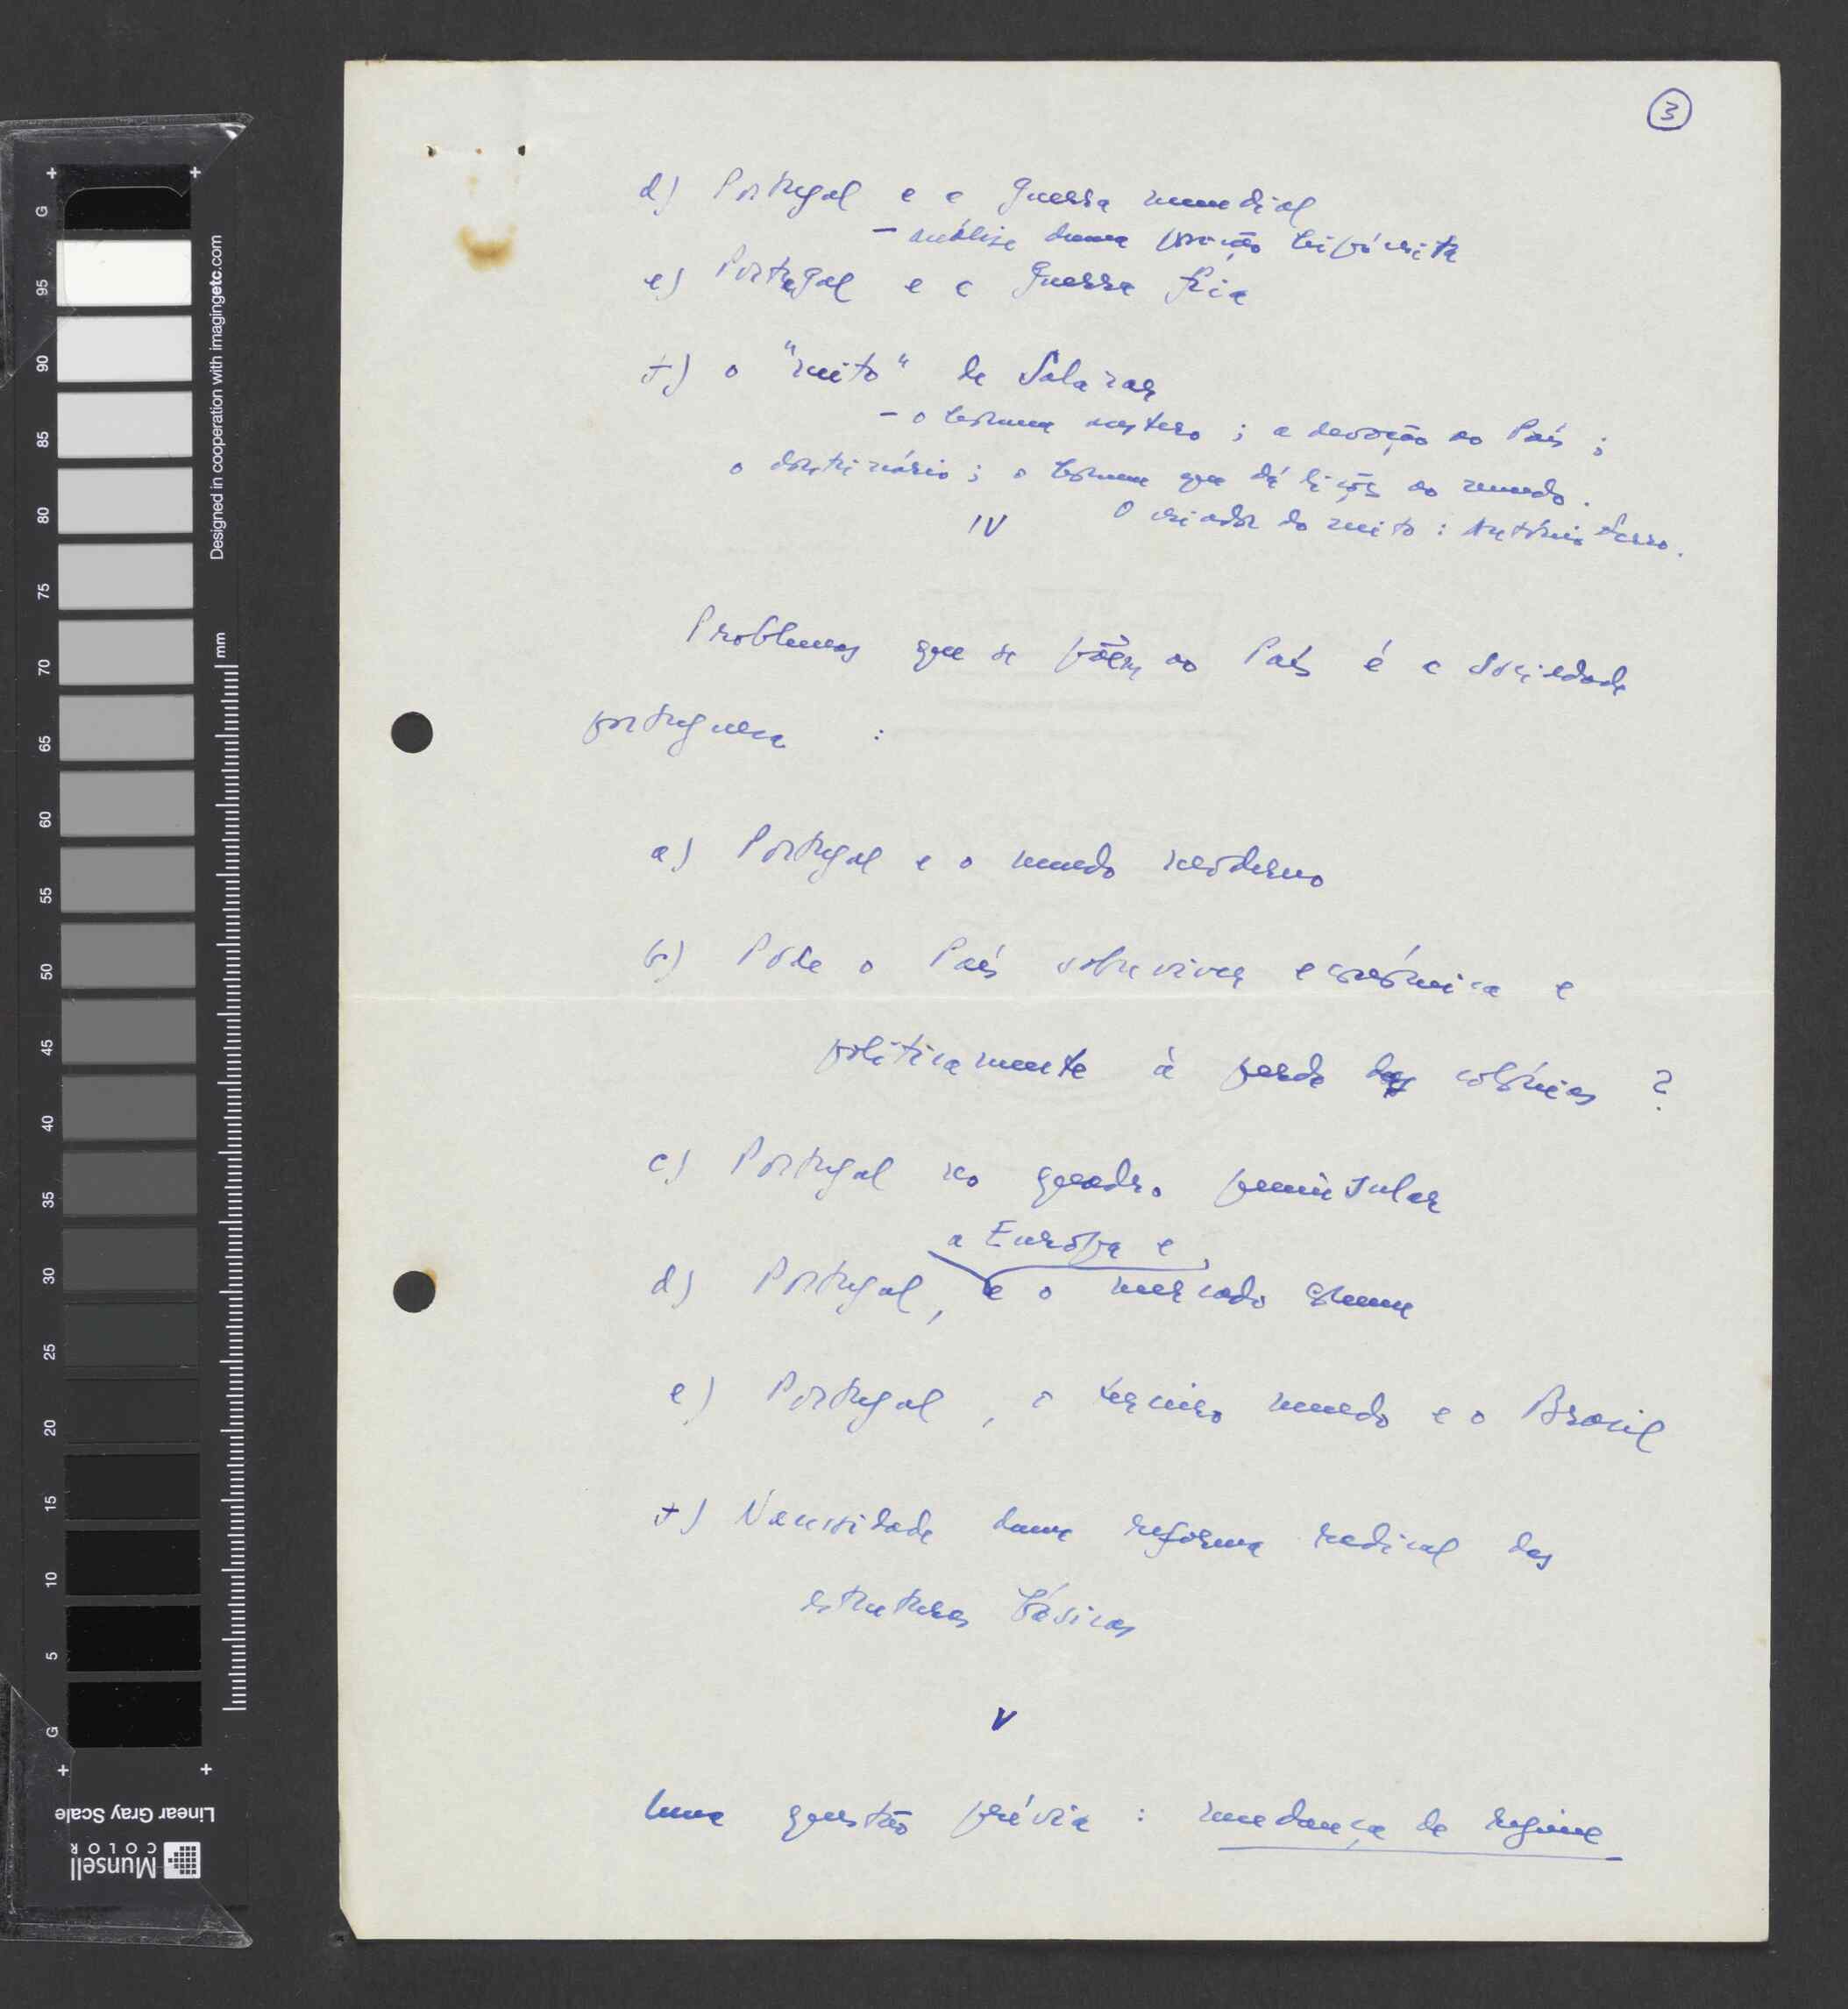 3
d) Portugal e a guerra mundial
- análise duma posição hipócrita
e) Portugal e a guerra fria
f) o "mito" de Salazar
- o homem austero ; a devoção ao País ;
o doutrinário ; o homem que dá lições ao mundo.
IV O criador do mito : António Ferro.
Problemas que se põem ao País e à sociedade
portuguesa :
a) Portugal e o mundo moderno
b) Pode o País sobreviver económica e
politicamente à perda das colónias ?
c) Portugal no quadro peninsular
a Europa e
d) Portugal, e o mercado comum
e) Portugal, o terceiro mundo e o Brasil
f) Necessidade duma reforma radical das
estruturas básicas
V
Uma questão prévia : mudança de regime
G 95 90 85 80 75 70 65 60 55 50 45 40 35 30 25 20 15 10 5 G
Designed in cooperation with imagingetc.com
mm
Linear Gray Scale
Munsell
COLOR